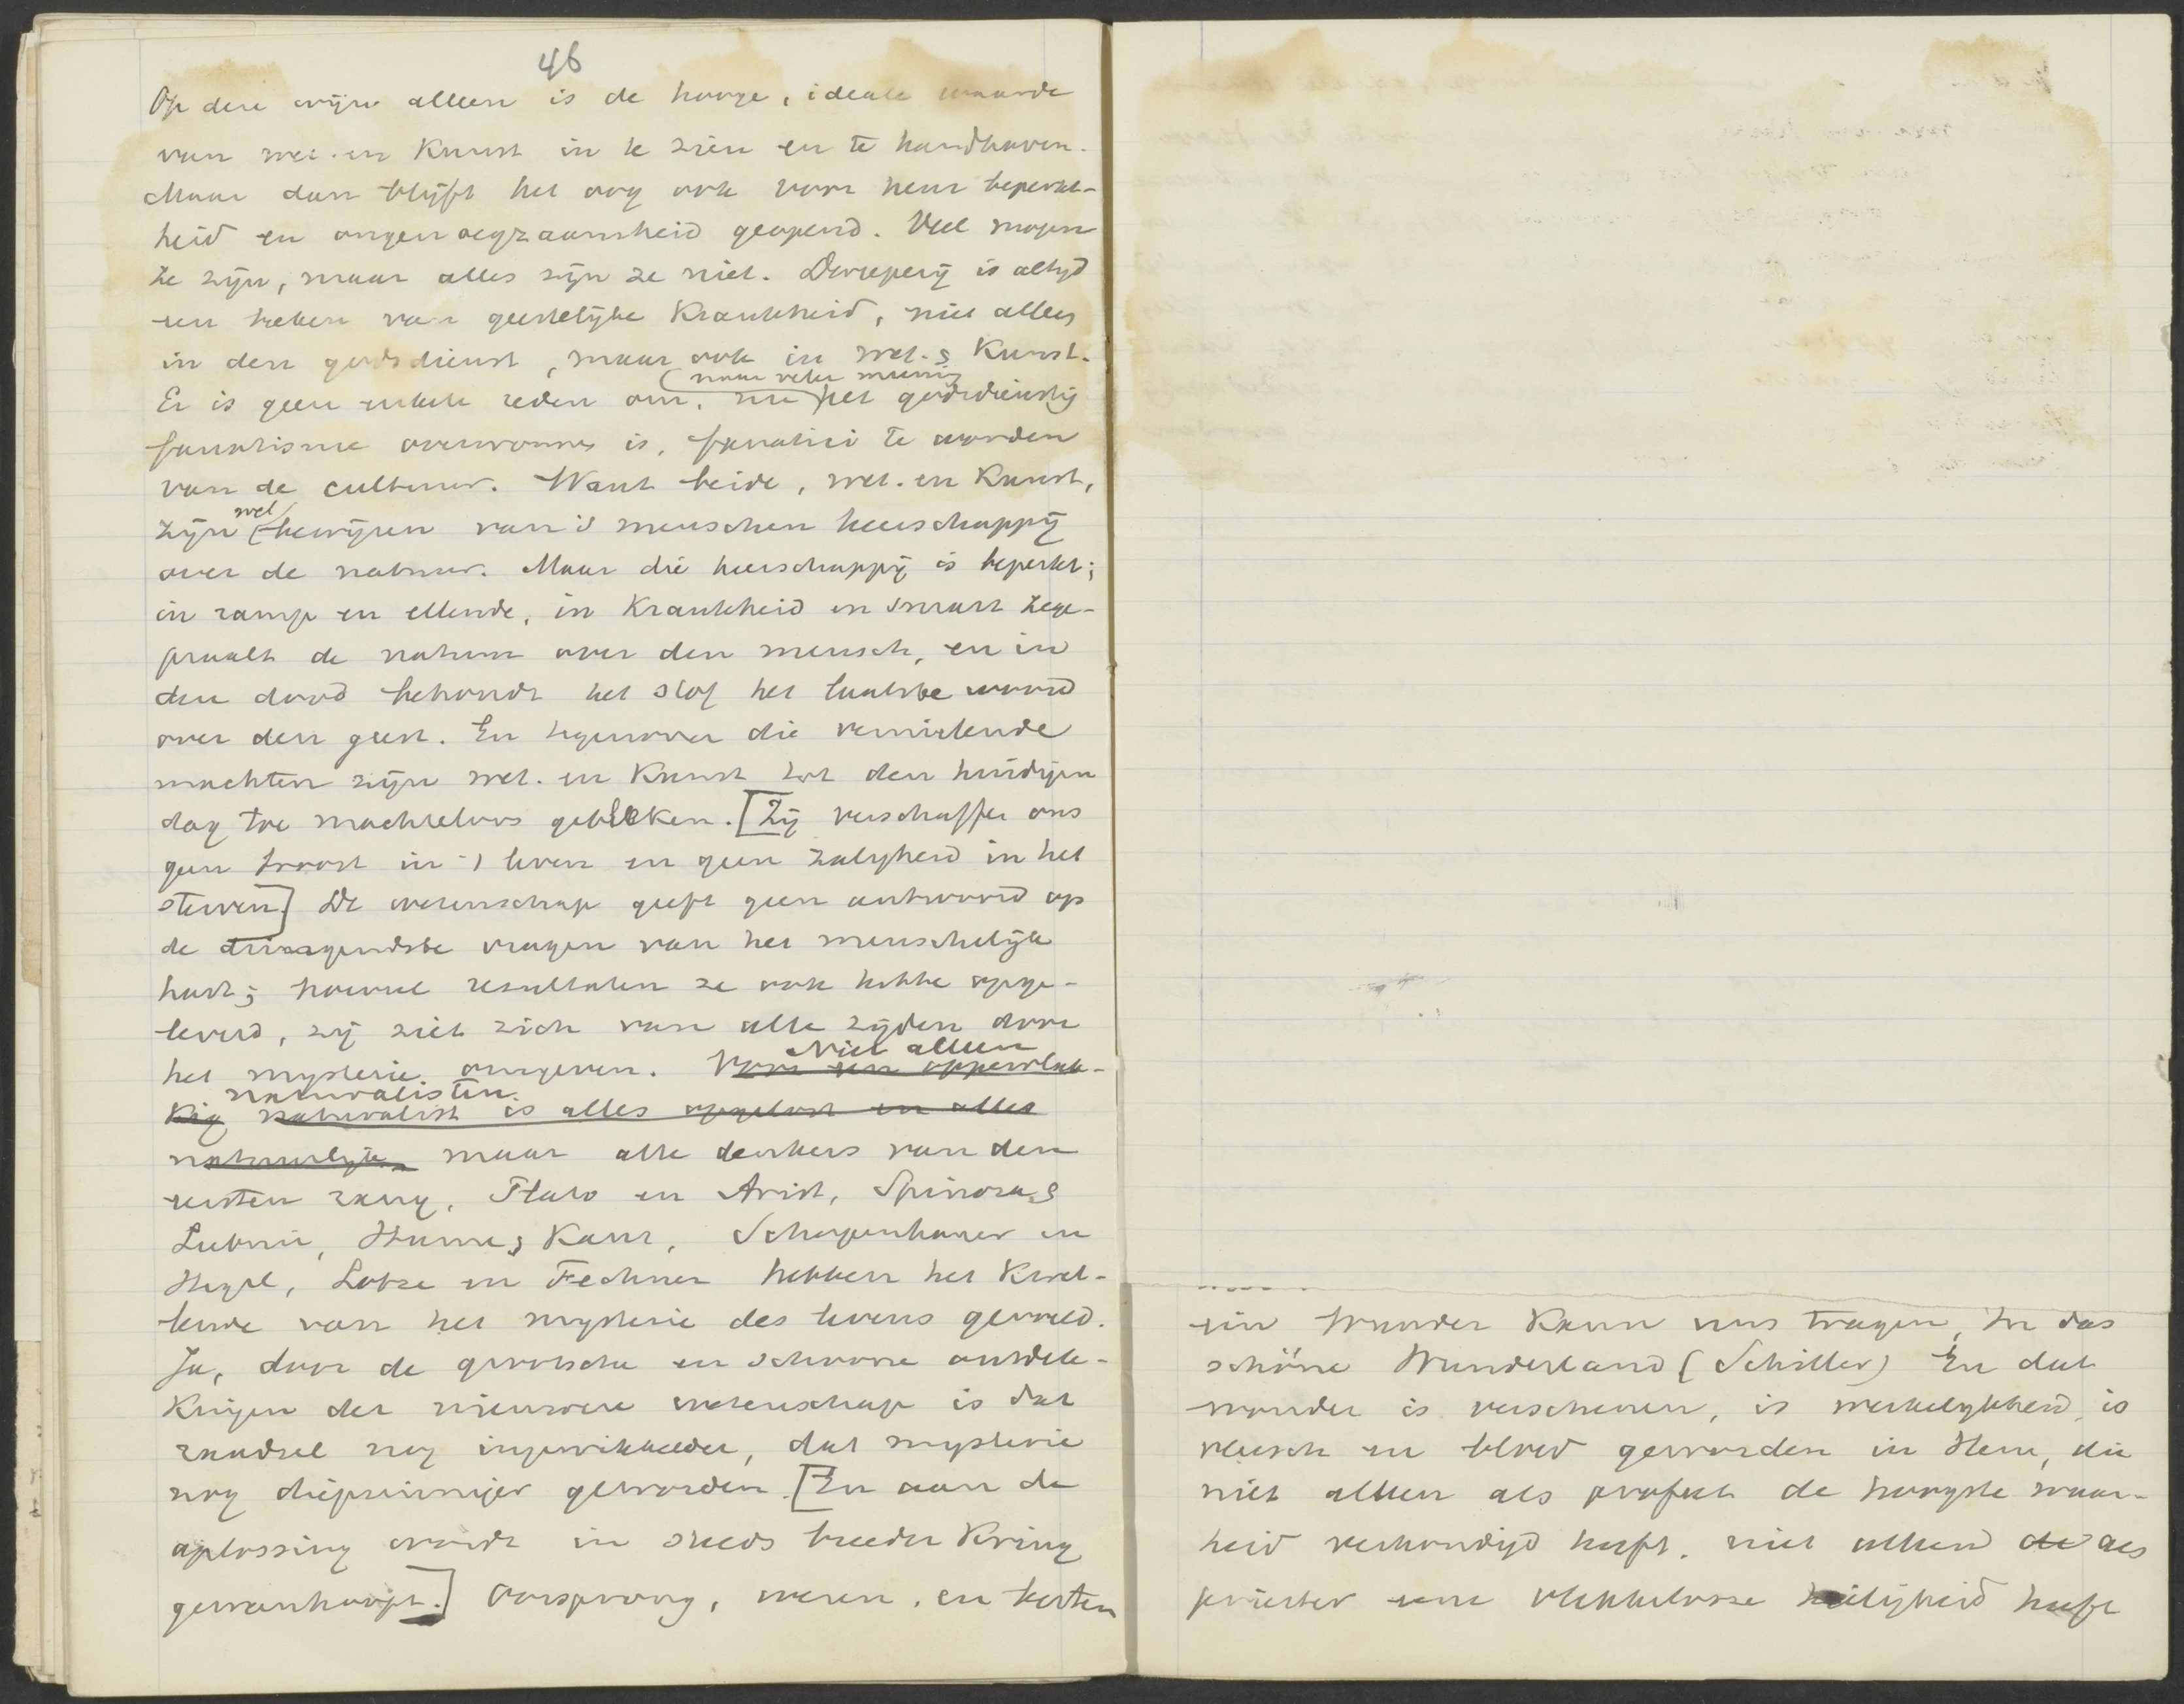 46
Op deze wijze alleen is de hooge, ideale waarde
van wet. en Kunst in te zien en te handhaven.
Maar dan blijft het oog ook voor hun beperkt-
heid en ongenoegzaamheid geopend. Veel mogen
ze zijn, maar alles zijn ze niet. Dweeperij is altijd
een teeken van geestelijke Krankheid, niet alleen
in den godsdienst, maar ook in wet. & Kunst.
(naar veler meening
Er is geen enkele reden om, nu het godsdienstig
fanatisme overwonnen is, fanatici te worden
van de cultuur. Want beide, wet. en Kunst,
wel
zijn bewijzen van 's menschen heerschappij
over de natuur. Maar die heerschappij is beperkt;
in ramp en ellende, in Krankheid en smart zege-
praalt de natuur over den mensch, en in
den dood behoudt het stof het laatste woord
over den geest. En tegenover die vernielende
machten zijn wet. en Kunst tot den huidigen
dag toe machteloos gebleken. [Zij verschaffen ons
geen troost in 't leven en geen zaligheid in het
sterven.] De wetenschap geeft geen antwoord op
de dringendste vragen van het menschelijk
hart; hoeveel resultaten ze ook hebbe opge-
leverd, zij ziet zich van alle zijden door
Niet alleen
het mysterie omgeven. Voor een oppervlak-
naturalisten
kig naturalist is alles opgelost en alles
natuurlijk, maar alle denkers van den
eersten rang, Plato en Arist, Spinoza &
Leibniz, Hume & Kant, Schopenhauer en
Hegel, Lotze en Fechner hebben het Kwel-
lende van het mysterie des levens gevoeld.
Ja, door de grootsche en schoone ontdek-
Kingen der nieuwere wetenschap is dat
raadsel nog ingewikkelder, dat mysterie
nog diepzinniger geworden. [En aan de
oplossing wordt in steeds breeder Kring
gewanhoopt.] Oorsprong, wezen, en
ein Wunder Kann uns tragen, In das
schöne Wunderland (Schiller) En dat
wonder is verschenen, is werkelijkheid, is
vleesch en bloed geworden in Hem, die
niet alleen als profeet de hoogste waar-
heid verkondigd heeft, niet alleen de als
priester eene vlekkelooze heiligheid heeft